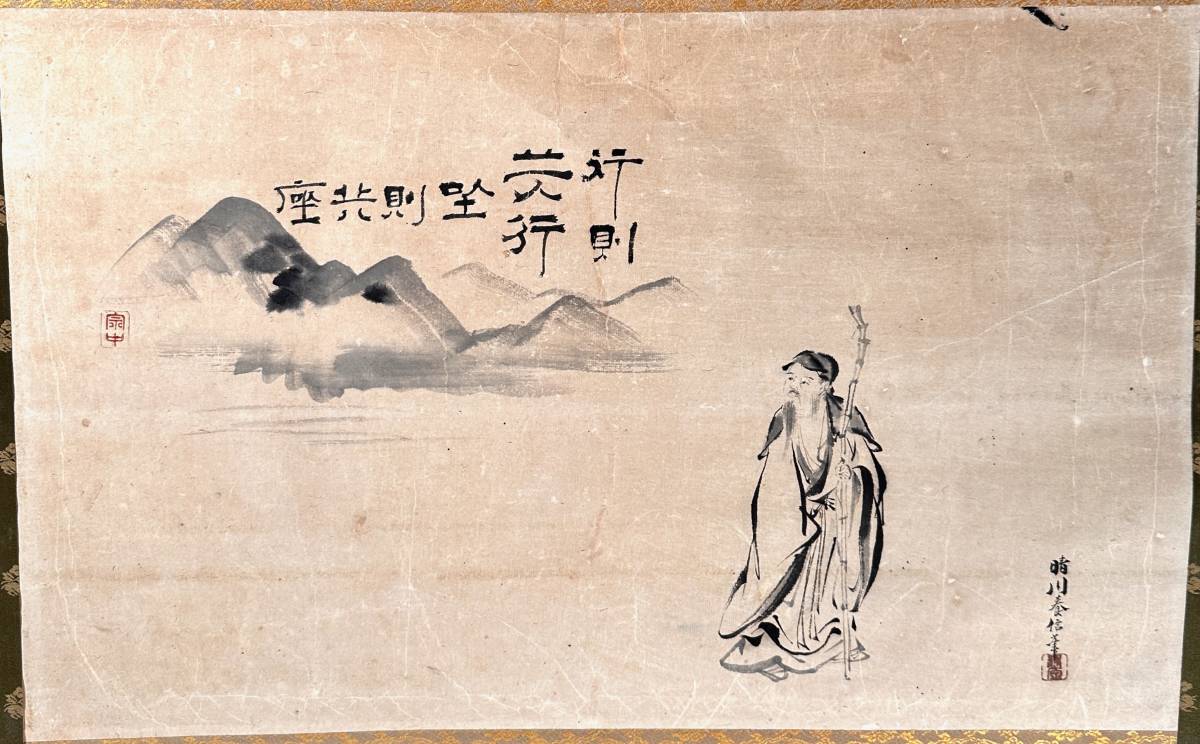 行則
共行
坐則共座
宗中
晴川養信筆